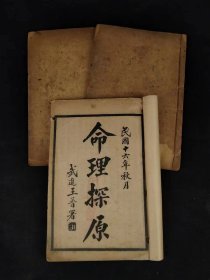 民國十六年秋月
命理探原
武進王
署